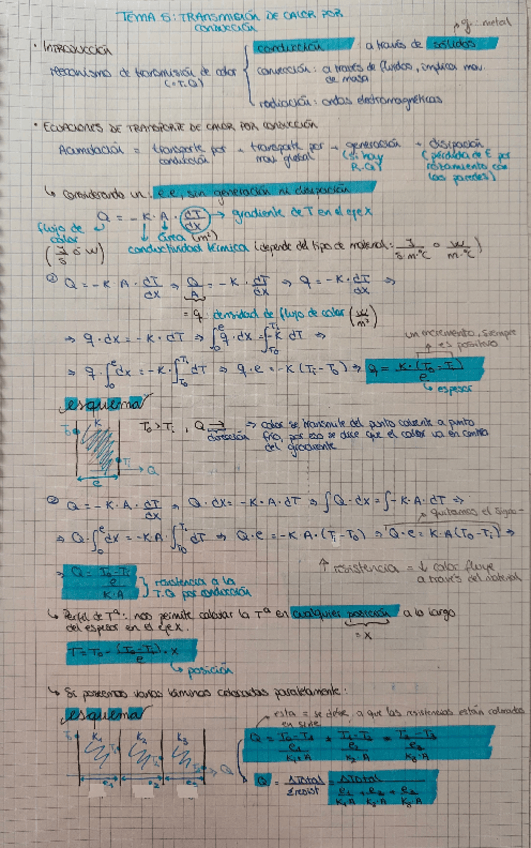 TEMA 5: TRANSMISIÓN DE CALOR POR
CONDUCCIÓN
ej: metal
• INTRODUCCIÓN
Mecanismo de transmisión de calor
(= T.Q)
conducción : a través de sólidos
convección : a través de fluidos, implica mov.
de masa
radiación : ondas electromagnéticas
• ECUACIONES DE TRANSPORTE DE CALOR POR CONDUCCIÓN
Acumulación = transporte por conducción + transporte por mov. global + generación (si hay R.Q) + disipación (pérdida de E por rozamiento con las paredes)
↳ Considerando un: e.e, sin generación ni disipación
Q = -K · A · dT/dx → gradiente de T en el eje x
flujo de calor (J/s ó W)
área (m²)
conductividad térmica (depende del tipo de material: J/s·m·ºC o W/m·ºC)
① Q = -K · A · dT/dx ⇒ Q/A = -K · dT/dx ⇒ q = -K · dT/dx ⇒
= q : densidad de flujo de calor (W/m²)
⇒ q · dx = -K · dT ⇒ ∫₀ᵉ q · dx = ∫_T₀^T₁ -K dT ⇒
un incremento, siempre
es positivo
⇒ q · ∫₀ᵉ dx = -K · ∫_T₀^T₁ dT ⇒ q · e = -K (T₁ - T₀) ⇒ q = K · (T₀ - T₁)/e
↳ espesor
esquema
T₀ K T₁ Q e
T₀ > T₁ , Q → dirección ⇒ calor se transmite del punto caliente a punto
frío, por eso se dice que el calor va en contra
del gradiente
② Q = -K · A · dT/dx ⇒ Q · dx = -K · A · dT ⇒ ∫ Q · dx = ∫ -K · A · dT ⇒
quitamos el signo -
⇒ Q · ∫₀ᵉ dx = -K·A · ∫_T₀^T₁ dT ⇒ Q · e = -K · A · (T₁ - T₀) ⇒ Q · e = K·A (T₀ - T₁) ⇒
⇒ Q = (T₀ - T₁)/(e/K·A) } resistencia a la
T.Q por conducción
↑ resistencia = ↓ calor fluye
a través del material
↳ Perfil de Tª : nos permite calcular la Tª en cualquier posición a lo largo
del espesor en el eje x.
= x
T = T₀ - (T₀ - T₁)/e · x
↳ posición
↳ Si ponemos varias láminas colocadas paralelamente :
esquema
esta = se debe, a que las resistencias están colocadas
en serie
K₁ K₂ K₃
e₁ e₂ e₃
Q